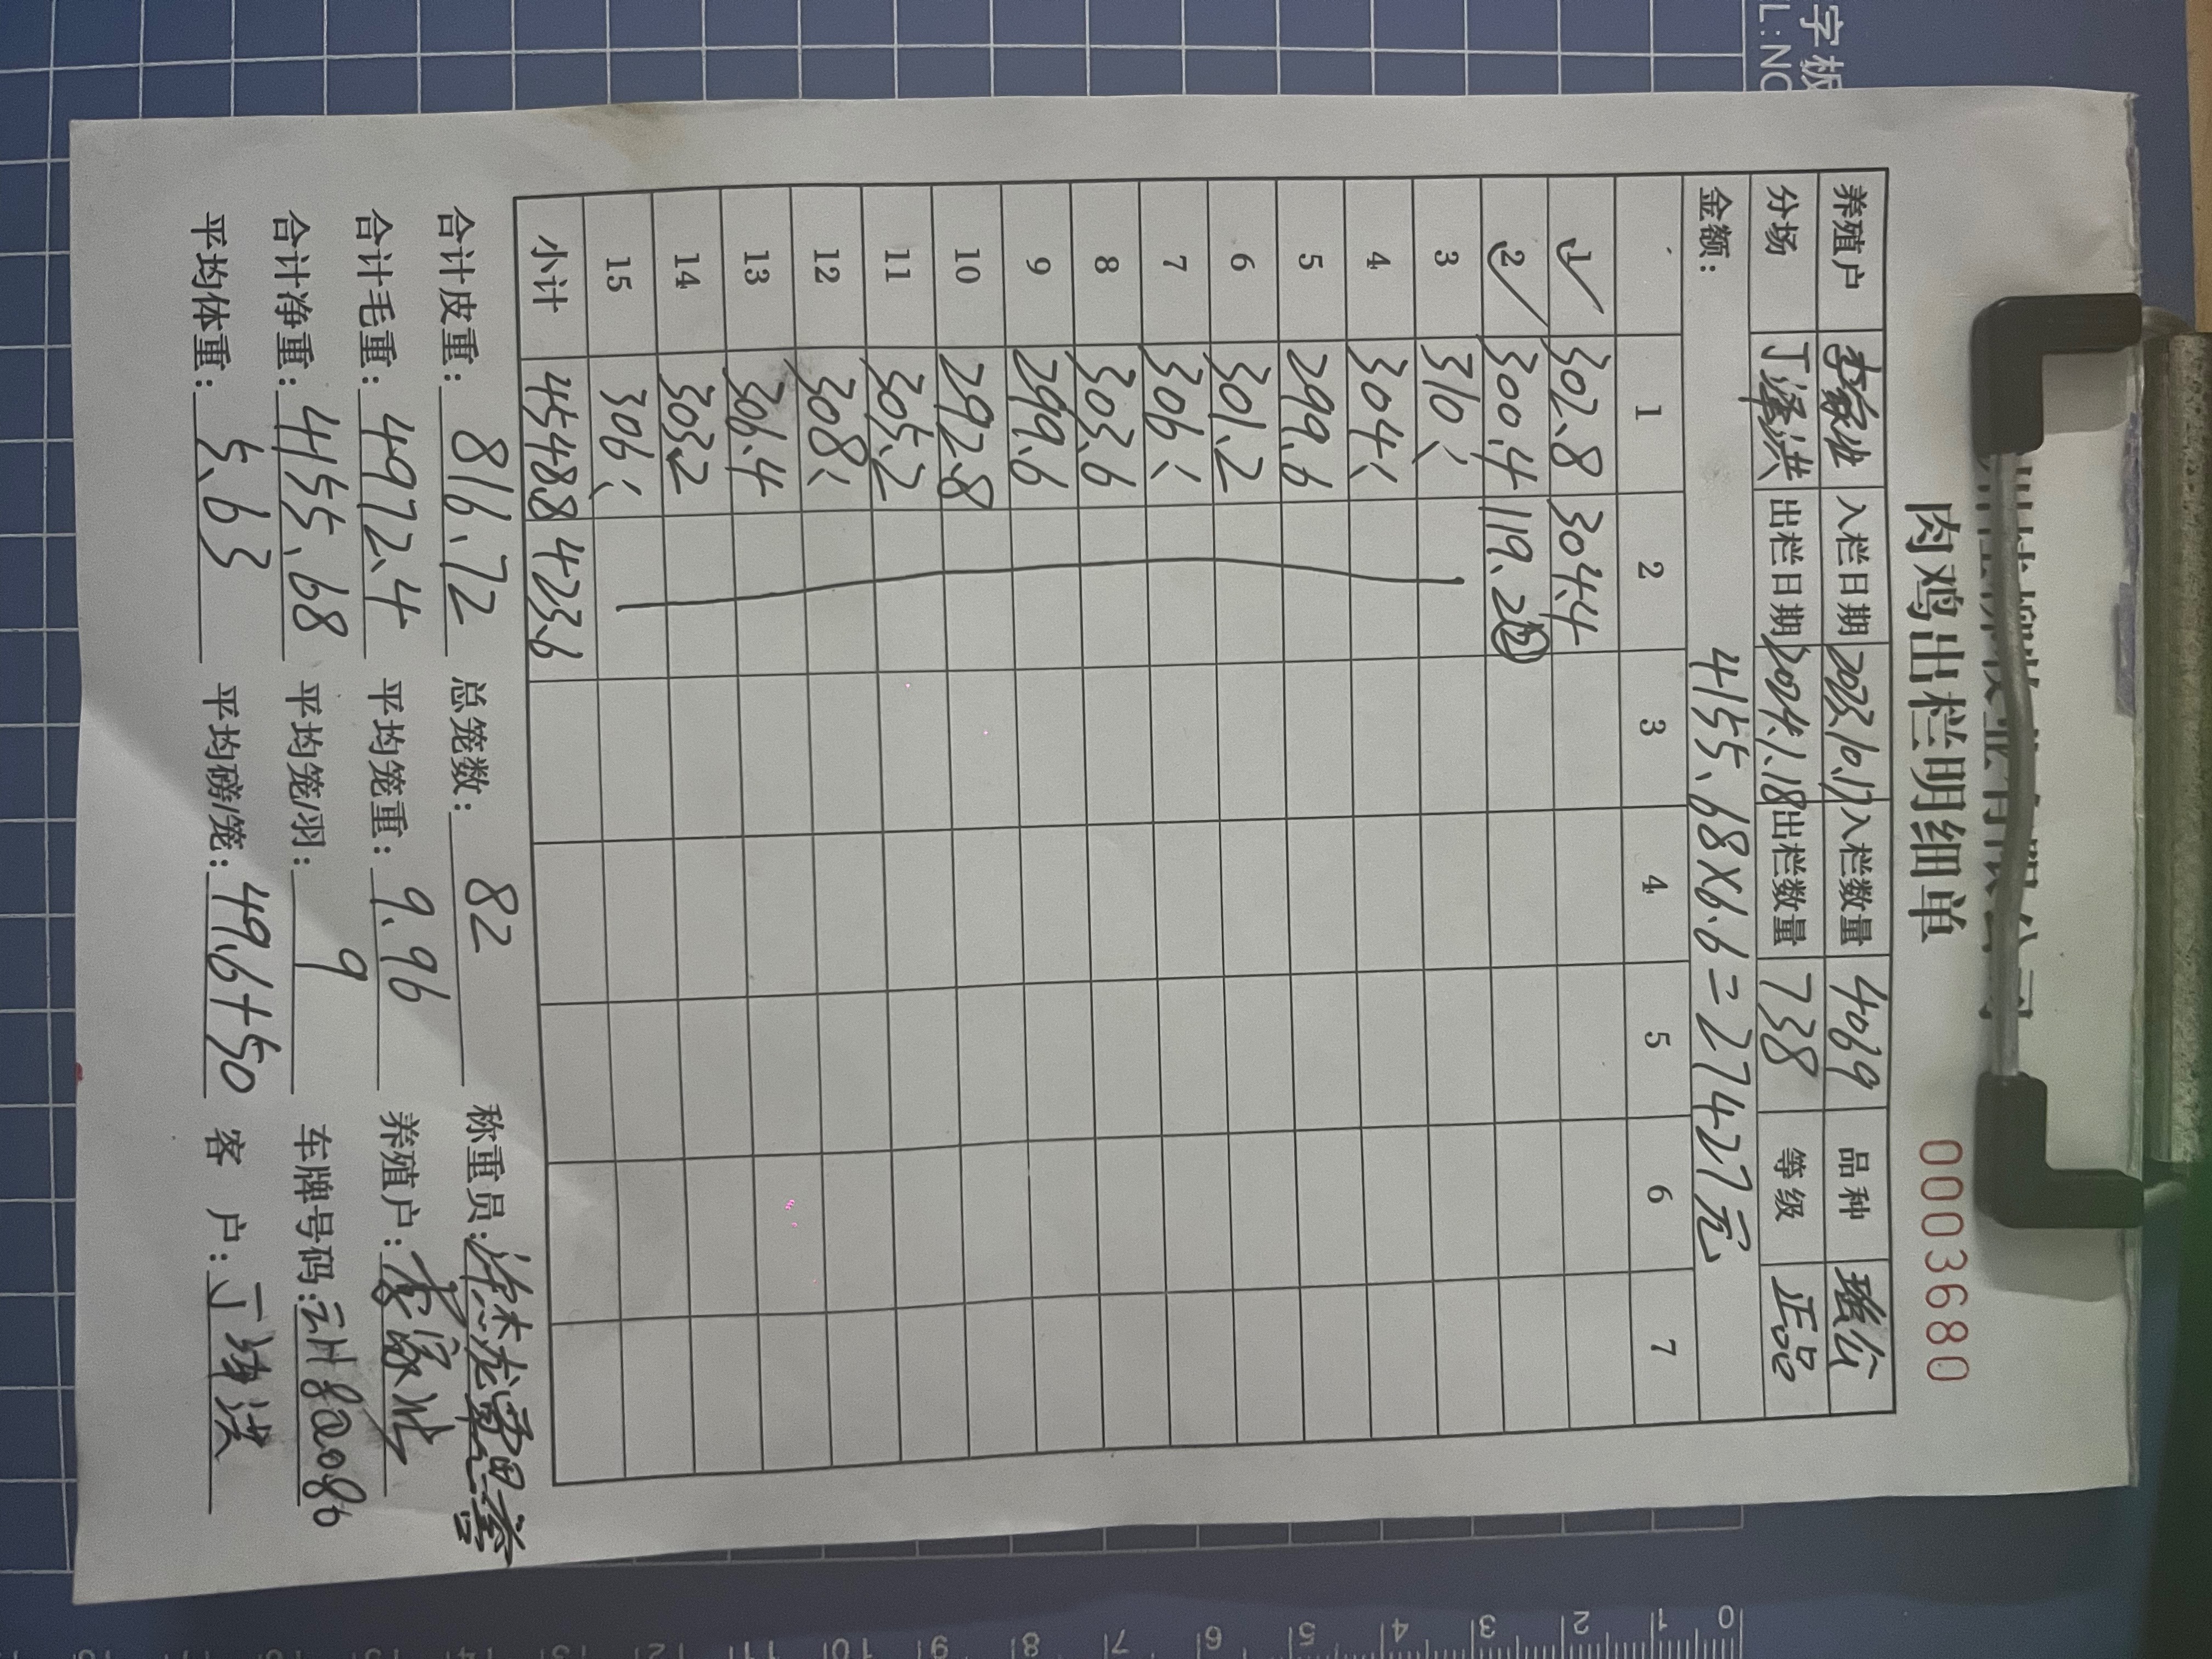 肉鸡出栏明细单 0003680
养殖户 入栏日期 2023.10.17 入栏数量 4069 品种
分场 出栏日期 2024.1.18 出栏数量 738 等级 正品
金额： 4155.68×6.6=27427元
1 2 3 4 5 6 7
1 302.8 304.4
2 300.4 119.2 ②
3 310.
4 304.
5 299.6
6 301.2
7 306.
8 303.6
9 299.6
10 292.8
11 305.2
12 308.
13 306.4
14 303.2
15 306.
小计 4548.8 423.6
合计皮重： 816.72 总笼数： 82 称重员：
合计毛重： 4972.4 平均笼重： 9.96 养殖户：
合计净重： 4155.68 平均笼/羽： 9 车牌号码：
平均体重： 5.63 平均磅/笼： 49.6+50 客 户：
字板
L:NO
0 1 2 3 4 5 6 7 8 9 10 11 12 13 14 15